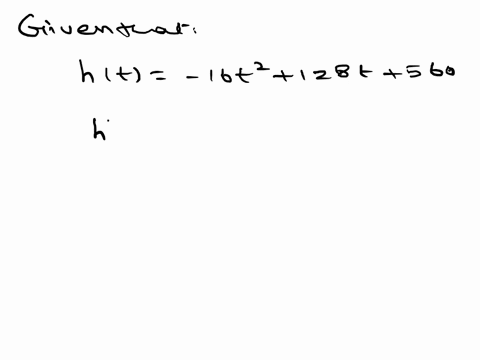 Given that:
h(t) = -16t² + 128t + 560
h'